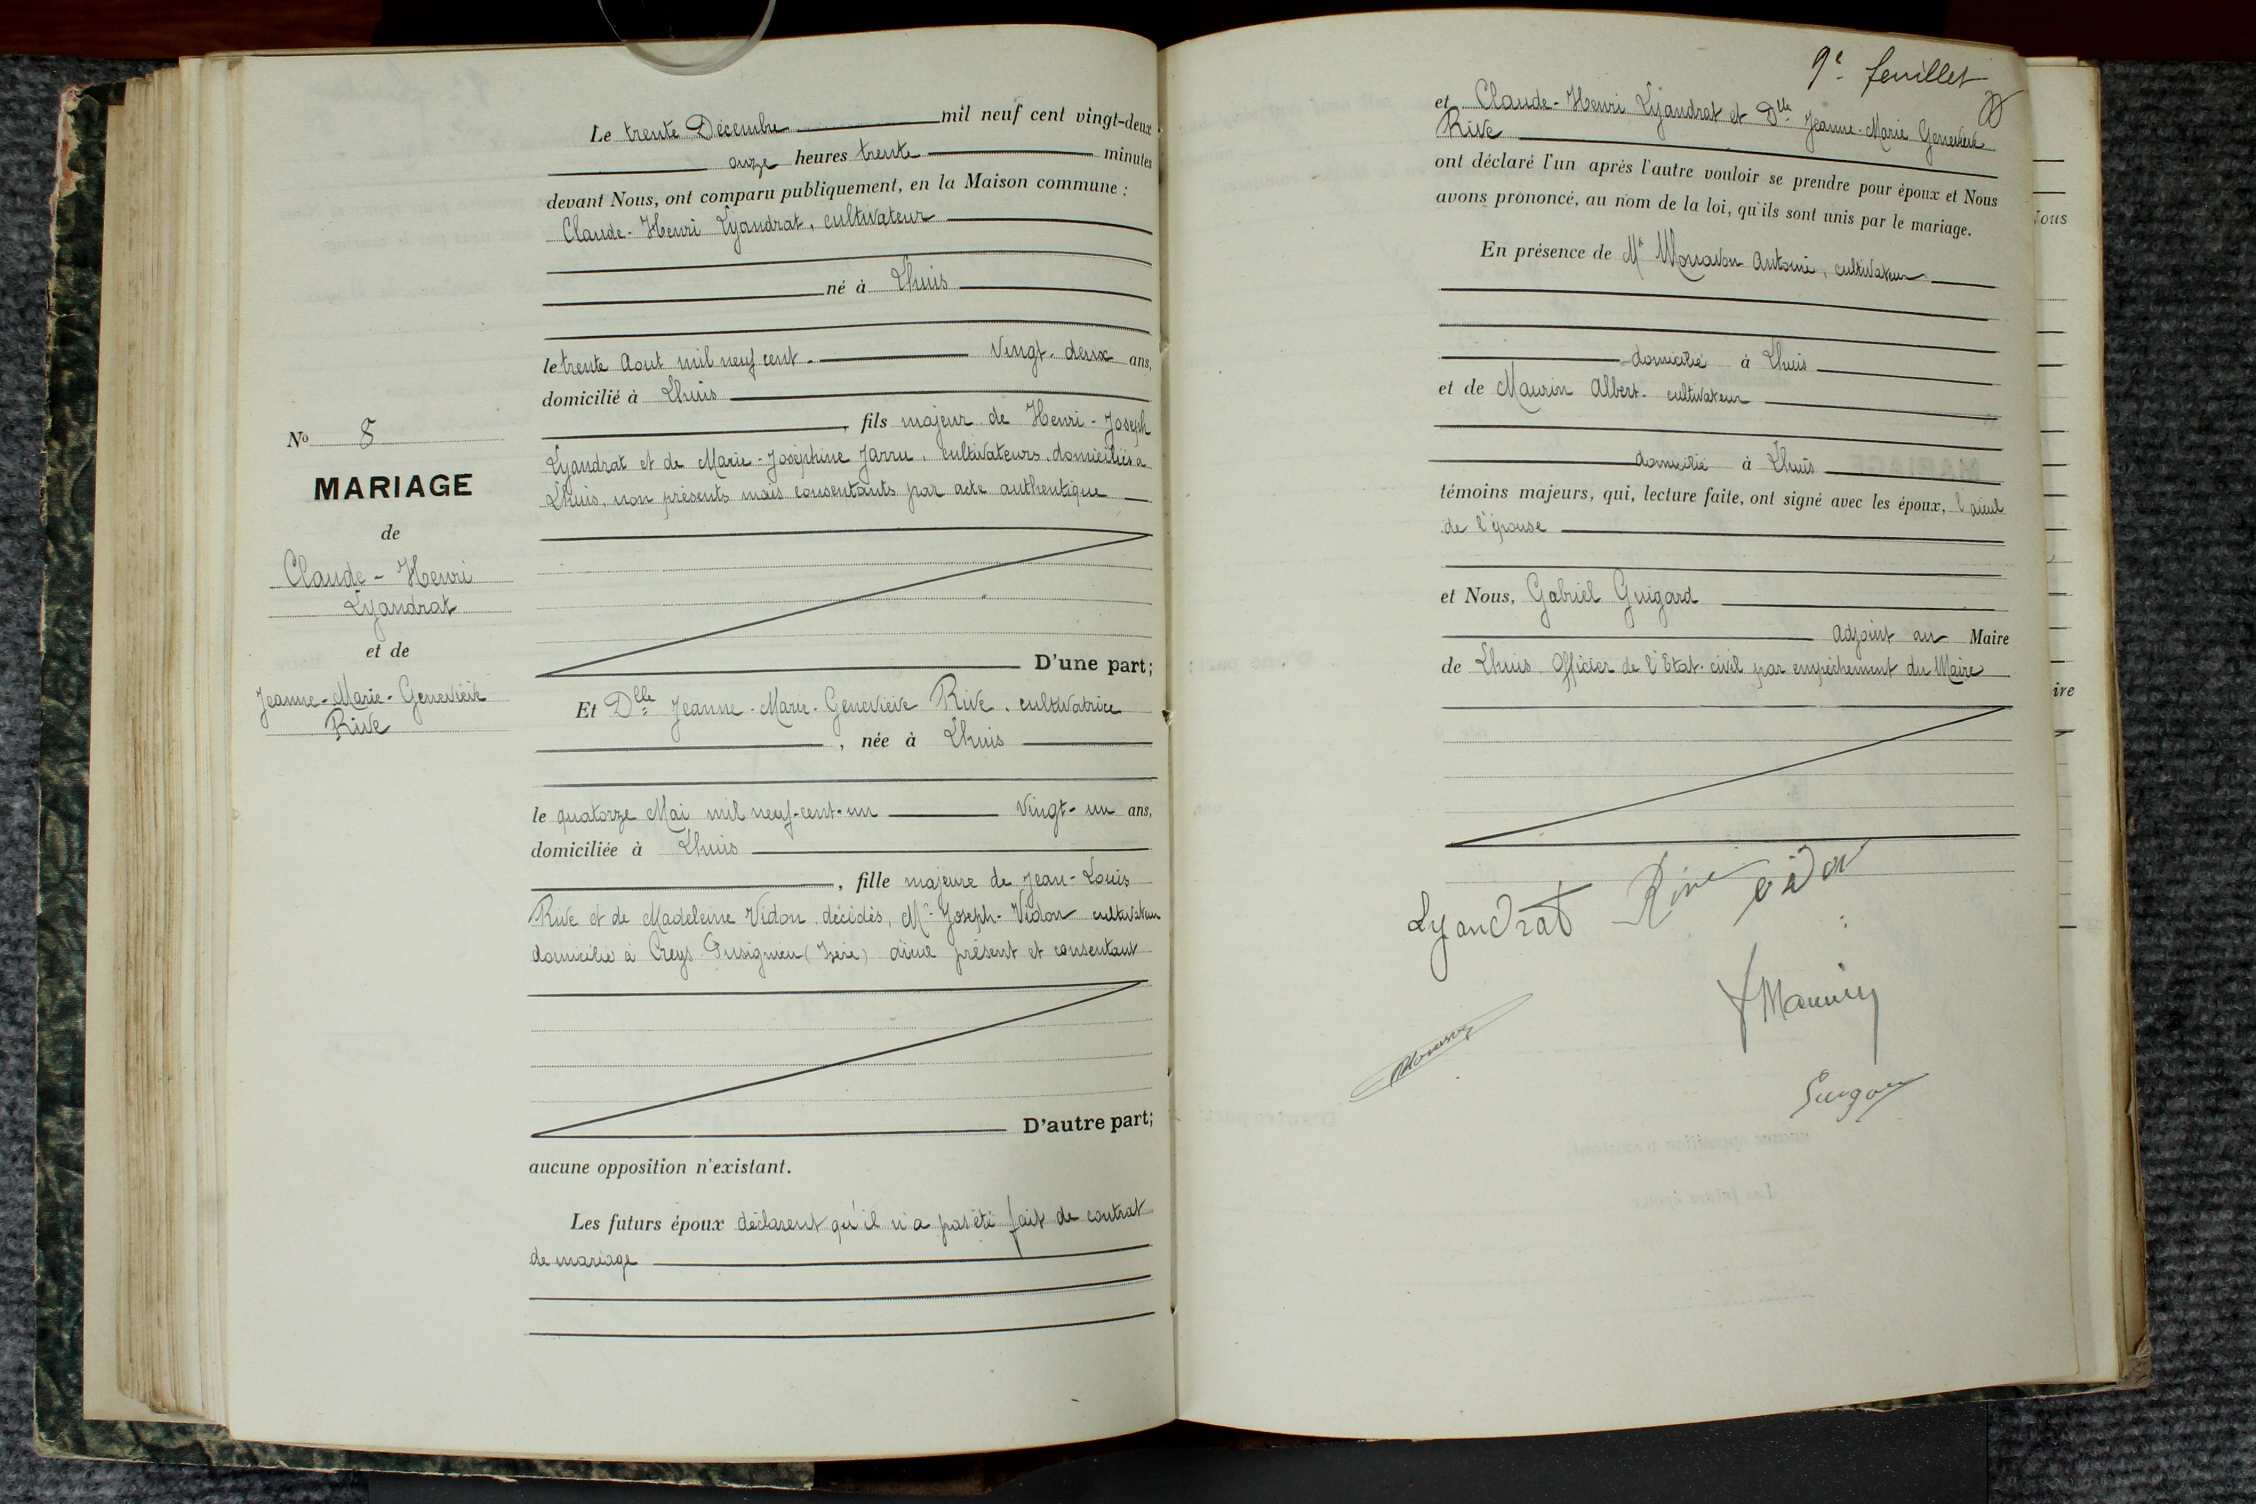 Le trente Décembre mil neuf cent vingt-deux
onze heures trente minutes
devant Nous, ont comparu publiquement, en la Maison commune :
Claude-Henri Lyandrat, cultivateur
né à Lhuis
le trente Aout mil neuf cent. Vingt-deux ans,
domicilié à Lhuis
, fils majeur de Henri-Joseph
Lyandrat et de Marie-Joséphine Jarru, cultivateurs, domiciliés à
Lhuis, non présents mais consentants par acte authentique
D'une part;
No 8
MARIAGE
de
Claude-Henri
Lyandrat
et de
Jeanne-Marie-Geneviève
Rive
Et Dlle Jeanne-Marie-Geneviève Rive, cultivatrice
, née à Lhuis
le quatorze Mai mil neuf-cent-un Vingt-un ans,
domiciliée à Lhuis
, fille majeure de Jean-Louis
Rive et de Madeleine Vidon décédés, Mr Joseph-Vidon cultivateur
domicilié à Creys-Pusignieu (Isère) présent et consentant
D'autre part;
aucune opposition n'existant.
Les futurs époux déclarent qu'il n'a pas été fait de contrat
de mariage
9e feuillet
et Claude-Henri Lyandrat et Dlle Jeanne-Marie Geneviève
Rive
ont déclaré l'un après l'autre vouloir se prendre pour époux et Nous
avons prononcé, au nom de la loi, qu'ils sont unis par le mariage.
En présence de Mr Mouavon Antoine, cultivateur
domicilié à Lhuis
et de Maurin Albert. cultivateur
domicilié à Lhuis
témoins majeurs, qui, lecture faite, ont signé avec les époux, l'aieul
de l'épouse
et Nous, Gabriel Guigard
adjoint au Maire
de Lhuis Officier de l'Etat-civil par empêchement du Maire
Lyandrat Rive
Maurin